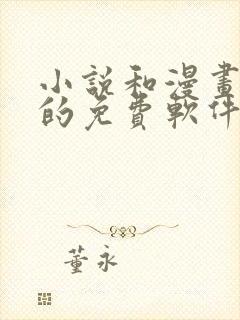 小說和漫畫
的免費軟件
董永